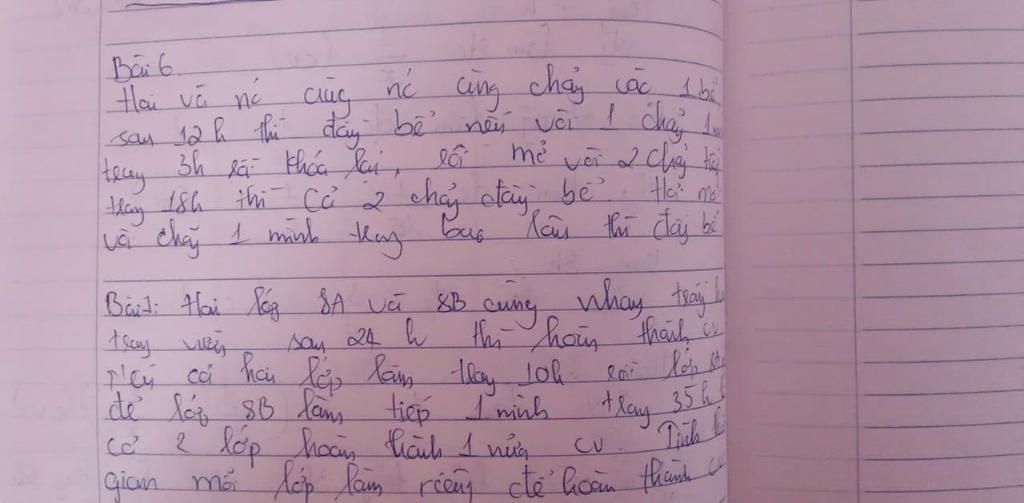 Bài 6.
Hai vòi nc cùng nc cùng chảy các 1 bể
sau 12h thì đầy bể nếu vòi 1 chảy 1
trong 3h rồi khóa lại, rồi mở vòi 2 chảy tiếp
trong 18h thì cả 2 chảy đầy bể. Hỏi mỗi
vòi chảy 1 mình trong bao lâu thì đầy bể
Bài 7: Hai lớp 8A và 8B cùng nhay
trong vườn sau 24 h thì hoàn thành cv
Nếu cả hai lớp làm trong 10h rồi lớp 8A
để lớp 8B làm tiếp 1 mình trong 35h
cả 2 lớp hoàn thành 1 nửa cv. Tính
gian mỗi lớp làm riêng để hoàn thành cv